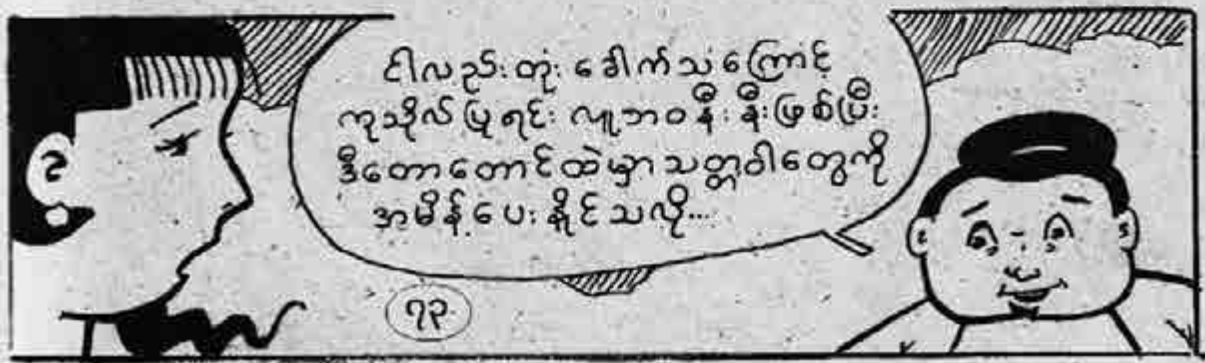 ငါလည်းတုံးခေါက်သံကြောင့်
ကုသိုလ်ပြုရင်းလူ့ဘဝနီးနီးဖြစ်ပြီး
ဒီတောတောင်ထဲမှာသတ္တဝါတွေကို
အမိန့်ပေးနိုင်သလို...
၇၃